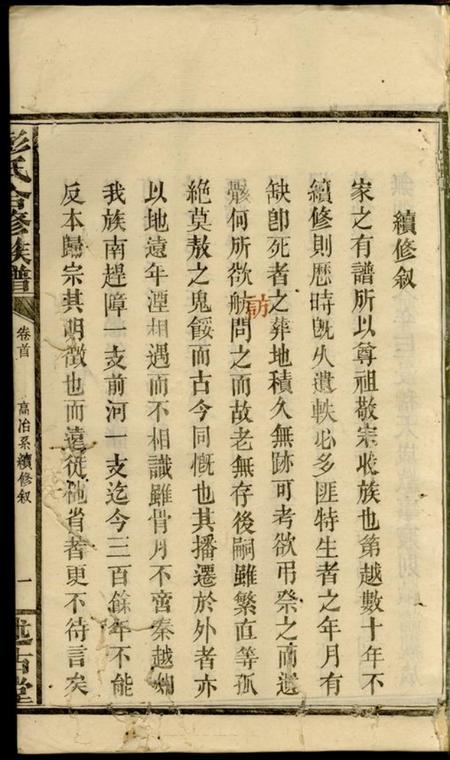 續修叙
家之有譜所以尊祖敬宗收族也第越數十年不
續修則歷時旣久遺軼必多匪特生者之年月有
缺卽死者之葬地積久無跡可考欲弔祭之而遺
骸何所欲舫問之而故老無存後嗣雖繁直等孤
訪
絶莫敖之鬼餒而古今同慨也其播遷於外者亦
以地遠年湮相遇而不相識雖骨月不啻秦越
我族南趕障一支前河一支迄今三百餘年不能
反本歸宗其明徵也而遠徙他省者更不待言矣
彭氏合修族譜
卷首
高冶系續修叙
一
述古堂